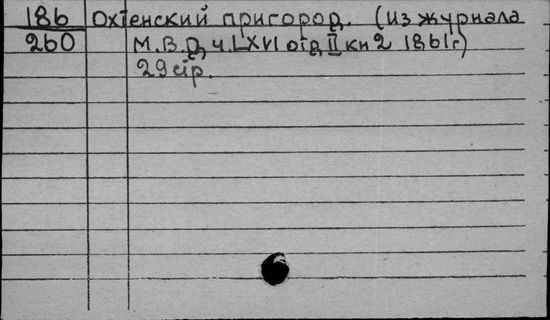 186 Охтенский пригород. (Из журнала
260 М.В.Д, ч. LXVI отд II кн 2 1861г)
29 стр.